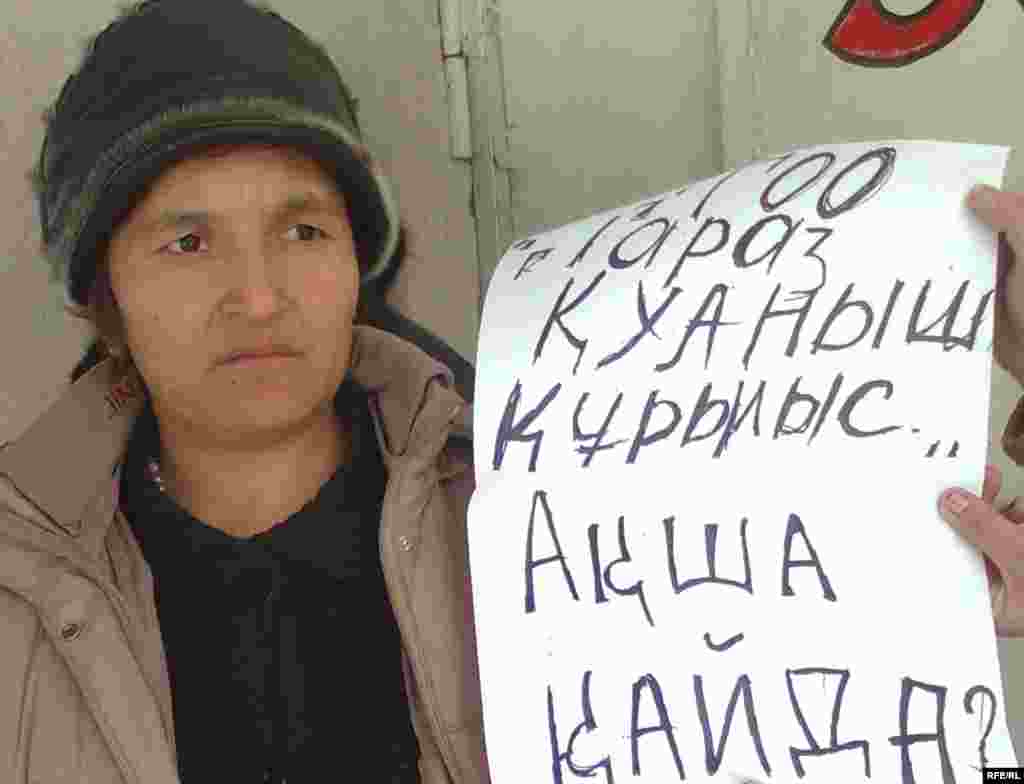 Тараз
ҚУАНЫШ
ҚҰРЫЛЫС...
АҚША
ҚАЙДА?
RFE/RL